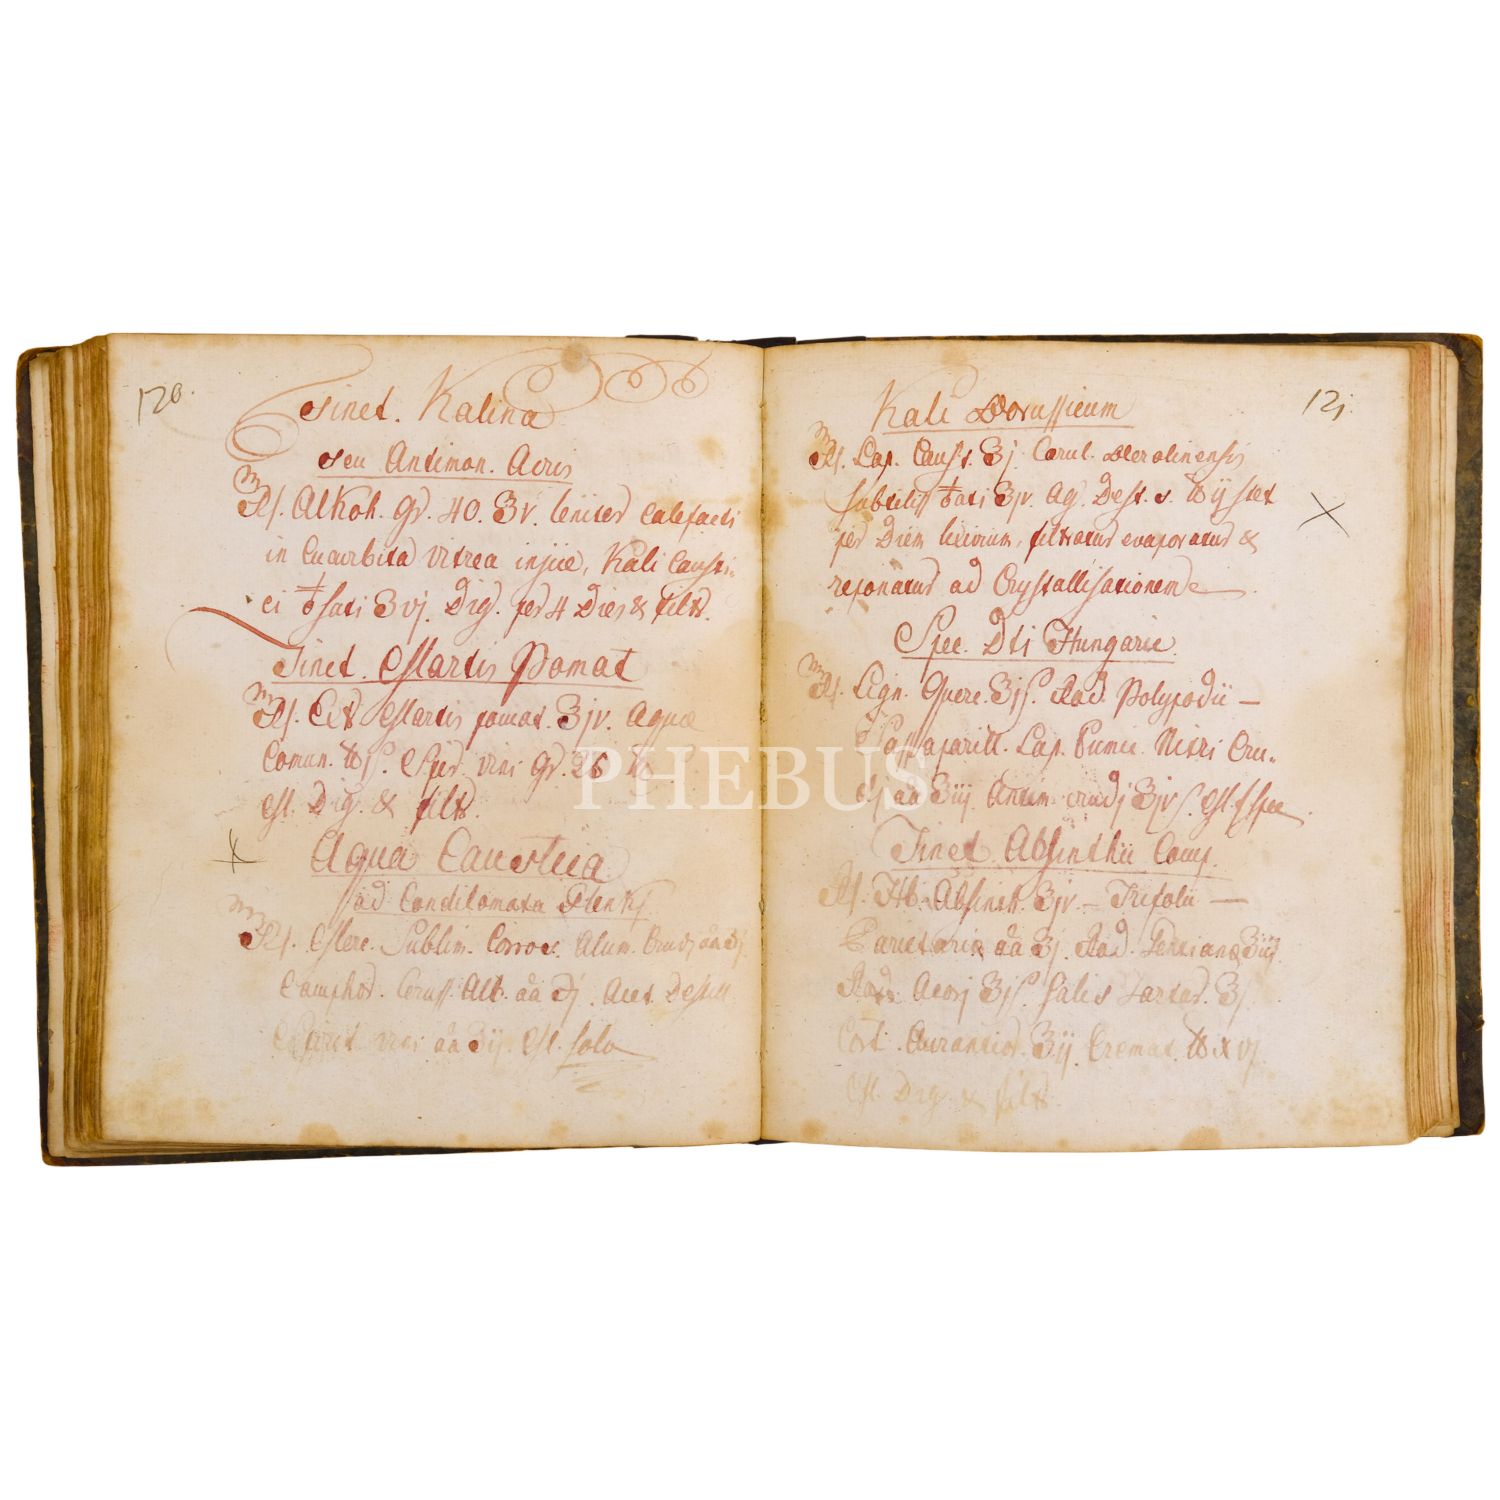 120.
Tinct. Kalina
seu Antimon. Acris
Rf. Alkoh. gr. 40. ℥v. leniter calefacti
in Cucurbita vitrea injice, Kali Causti-
ci ℥vj. Dig. per 4 Dies & filtr.
Tinct. Martis Pomat
Rf. Ext. Martis pomat. ℥jv. Aquæ
Comun. Spir. vini gr. 26
M. Dig. & filtr.
Aqua Caustica
ad Condilomata Plenkj
Rf. Merc. Sublim. Corros. Alum. Crudj aa ʒj.
Camphor. Ceruss. Alb. aa ʒj. Acet. Destill
Spirit vini aa ℥ij. M. solv
121.
Kali Borussicum
Rf. Lap. Caust. ℥j. Cerul. Berolinensis
subtiliss ℥jv. Aq. Dest. s. ℔ij stet
per Diem filtratur evaporatur &
reponatur ad Crystallisationem
Spec. Dti Hungarie
Rf. Lign. Querc. ℥jß. Rad. Polypodii —
Sassaparill. Lap. Pumic. Nitri Cru-
dj aa ℥iij. Antim. crudj ℥jvß. M. f. Spec
Tinct. Absinthii Comp.
Rf. Hb. Absinth. ℥jv — Trifolii —
aa ℥j. Rad. Gentianæ ℥iij
Rad. Acorj ℥jß. Salis Tartar. ℥j.
Cort. Aurantior. ℥ij. Cremat. ℔xvj
M. Dig. & filtr.
PHEBUS